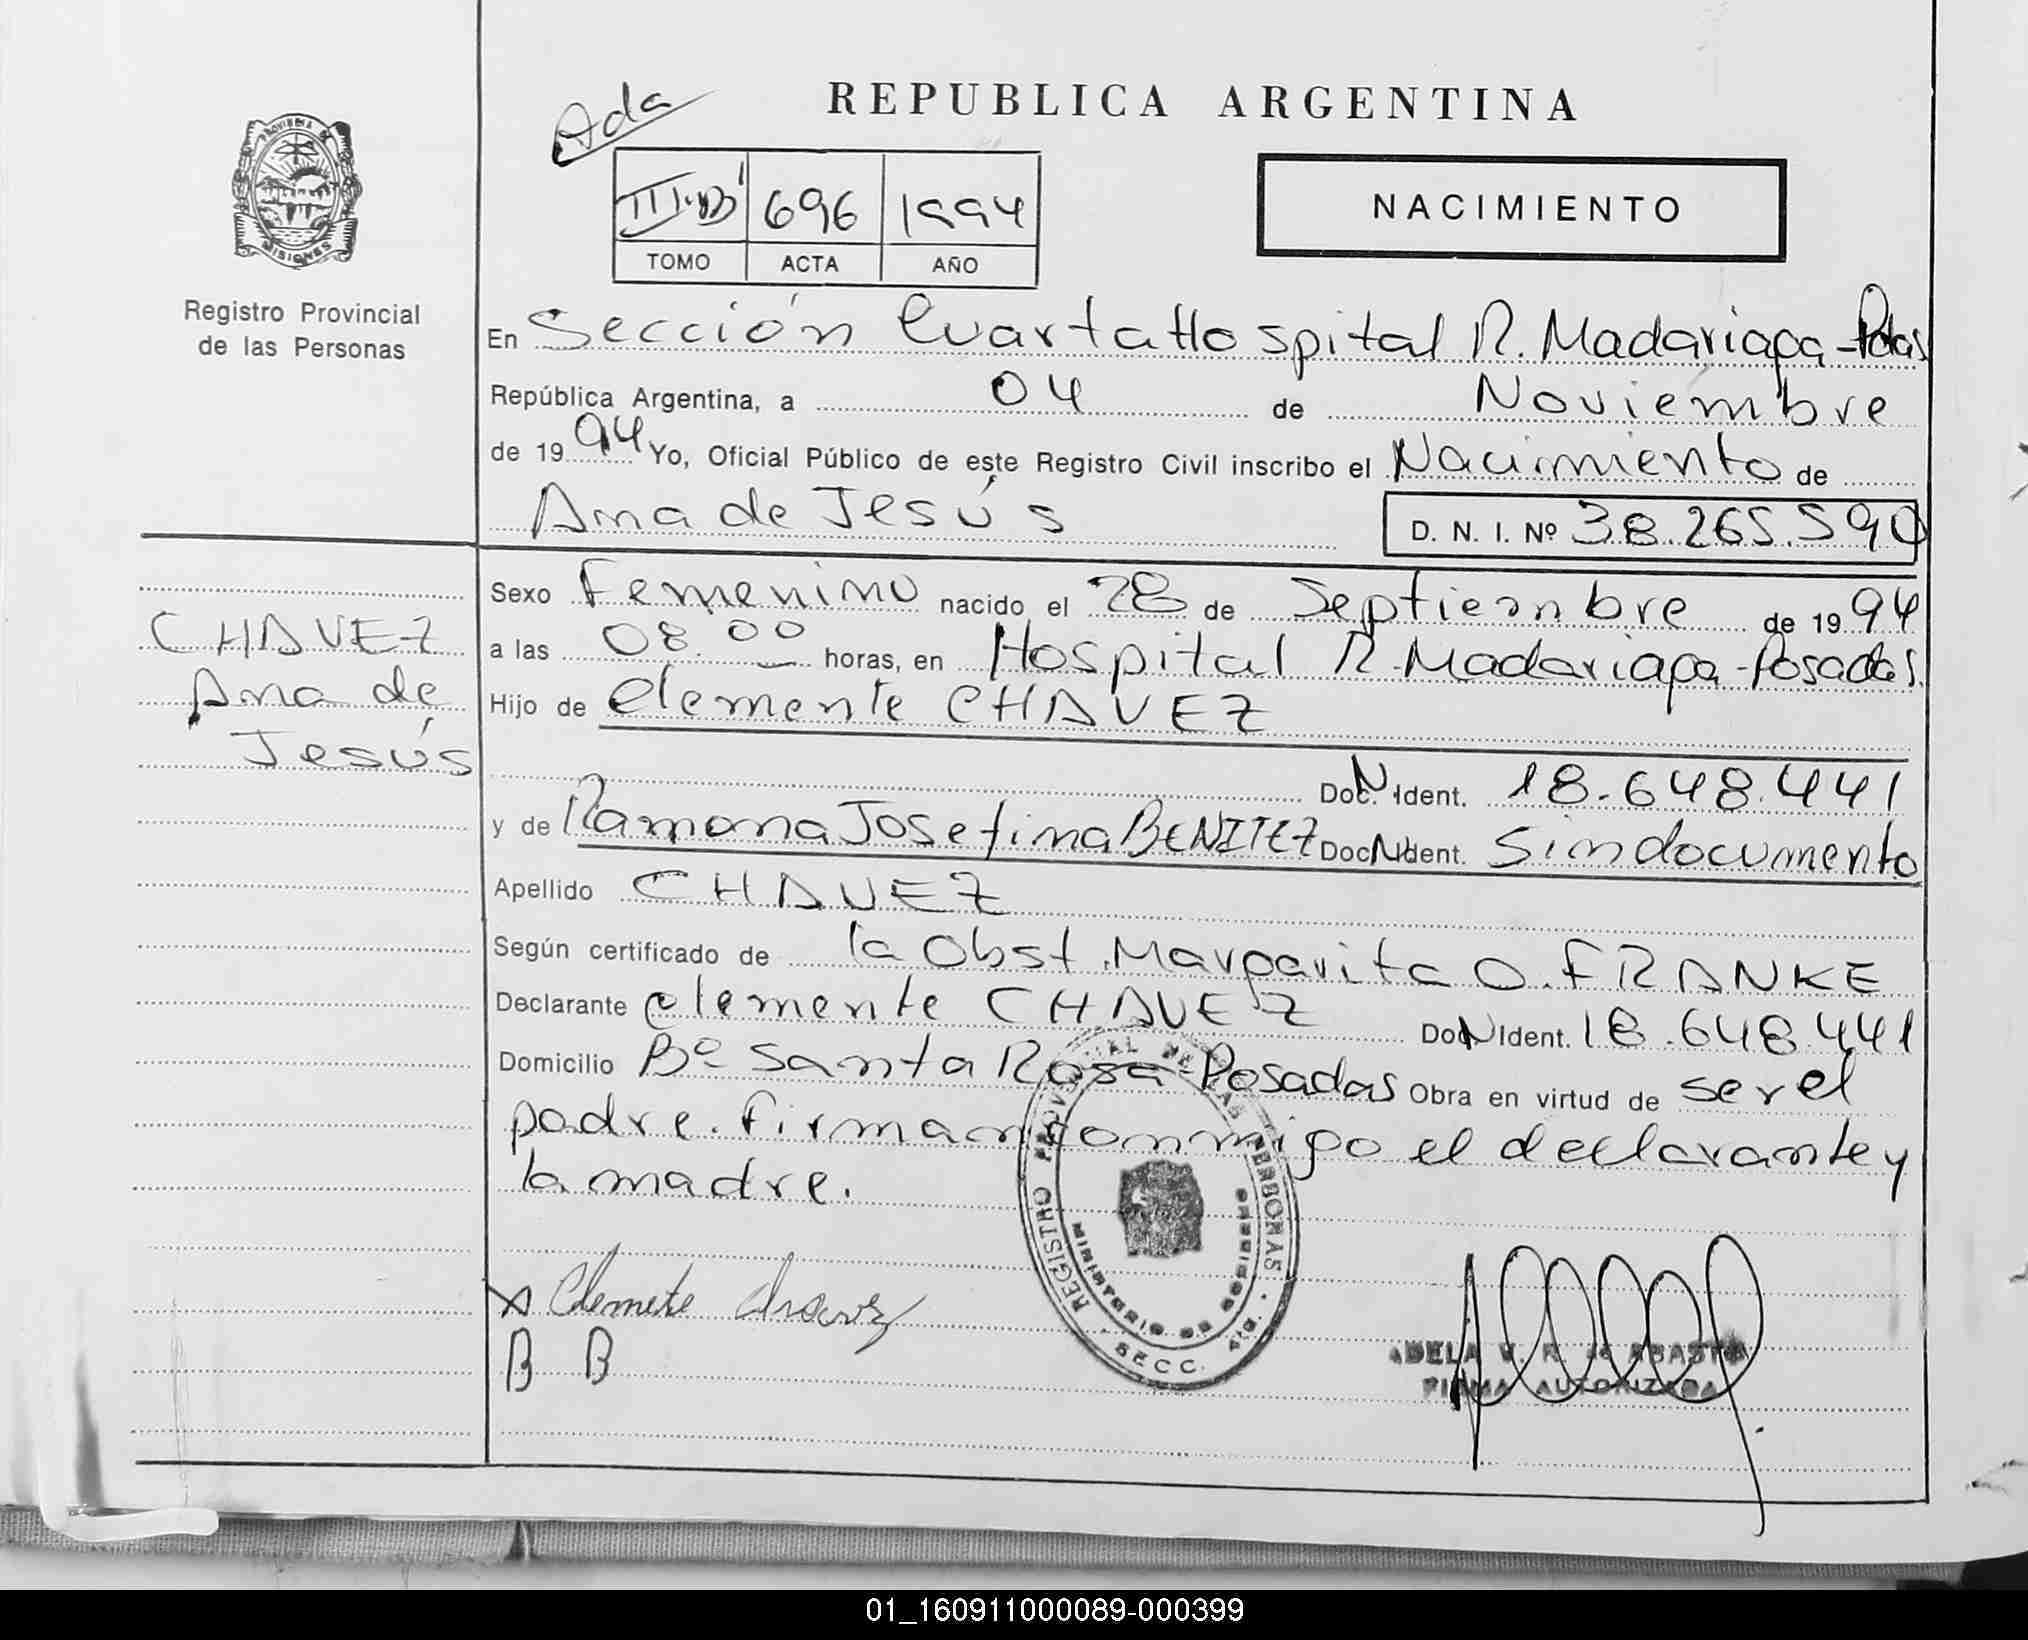 Ada
REPUBLICA ARGENTINA
PROVINCIA DE
MISIONES
Registro Provincial
de las Personas
696 1994
TOMO ACTA AÑO
NACIMIENTO
En Sección Cuarta Hospital R. Madariaga - Pdas
República Argentina, a 04 de Noviembre
de 1994 Yo, Oficial Público de este Registro Civil inscribo el Nacimiento de
Ana de Jesús D. N. I. Nº 38.265.590
CHAVEZ
Ana de
Jesús
Sexo Femenino nacido el 28 de Septiembre de 1994
a las 08.00 horas, en Hospital R. Madariaga - Posadas.
Hijo de Clemente CHAVEZ
Doc. N. Ident. 18.648.441
y de Ramona Josefina BENITEZ Doc N Ident. Sin documento
Apellido CHAVEZ
Según certificado de la Obst. Margarita O. FRANKE
Declarante Clemente CHAVEZ Doc N Ident. 18.648.441
Domicilio Bº Santa Rosa - Posadas Obra en virtud de ser el
padre. Firman conmigo el declarante y
la madre.
REGISTRO PROVINCIAL DE LAS PERSONAS
MINISTERIO DE GOBIERNO
SECC. 4ta.
Clemete Chavez
B B
ADELA V. R. de ABASTO
FIRMA AUTORIZADA
01_160911000089-000399